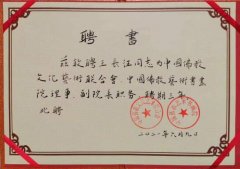 聘書
茲敦聘王長江同志為中國佛教
文化藝術聯合會、中國佛教藝術書畫
院理事、副院長職務，聘期三年。
此聘
二〇二一年六月九日